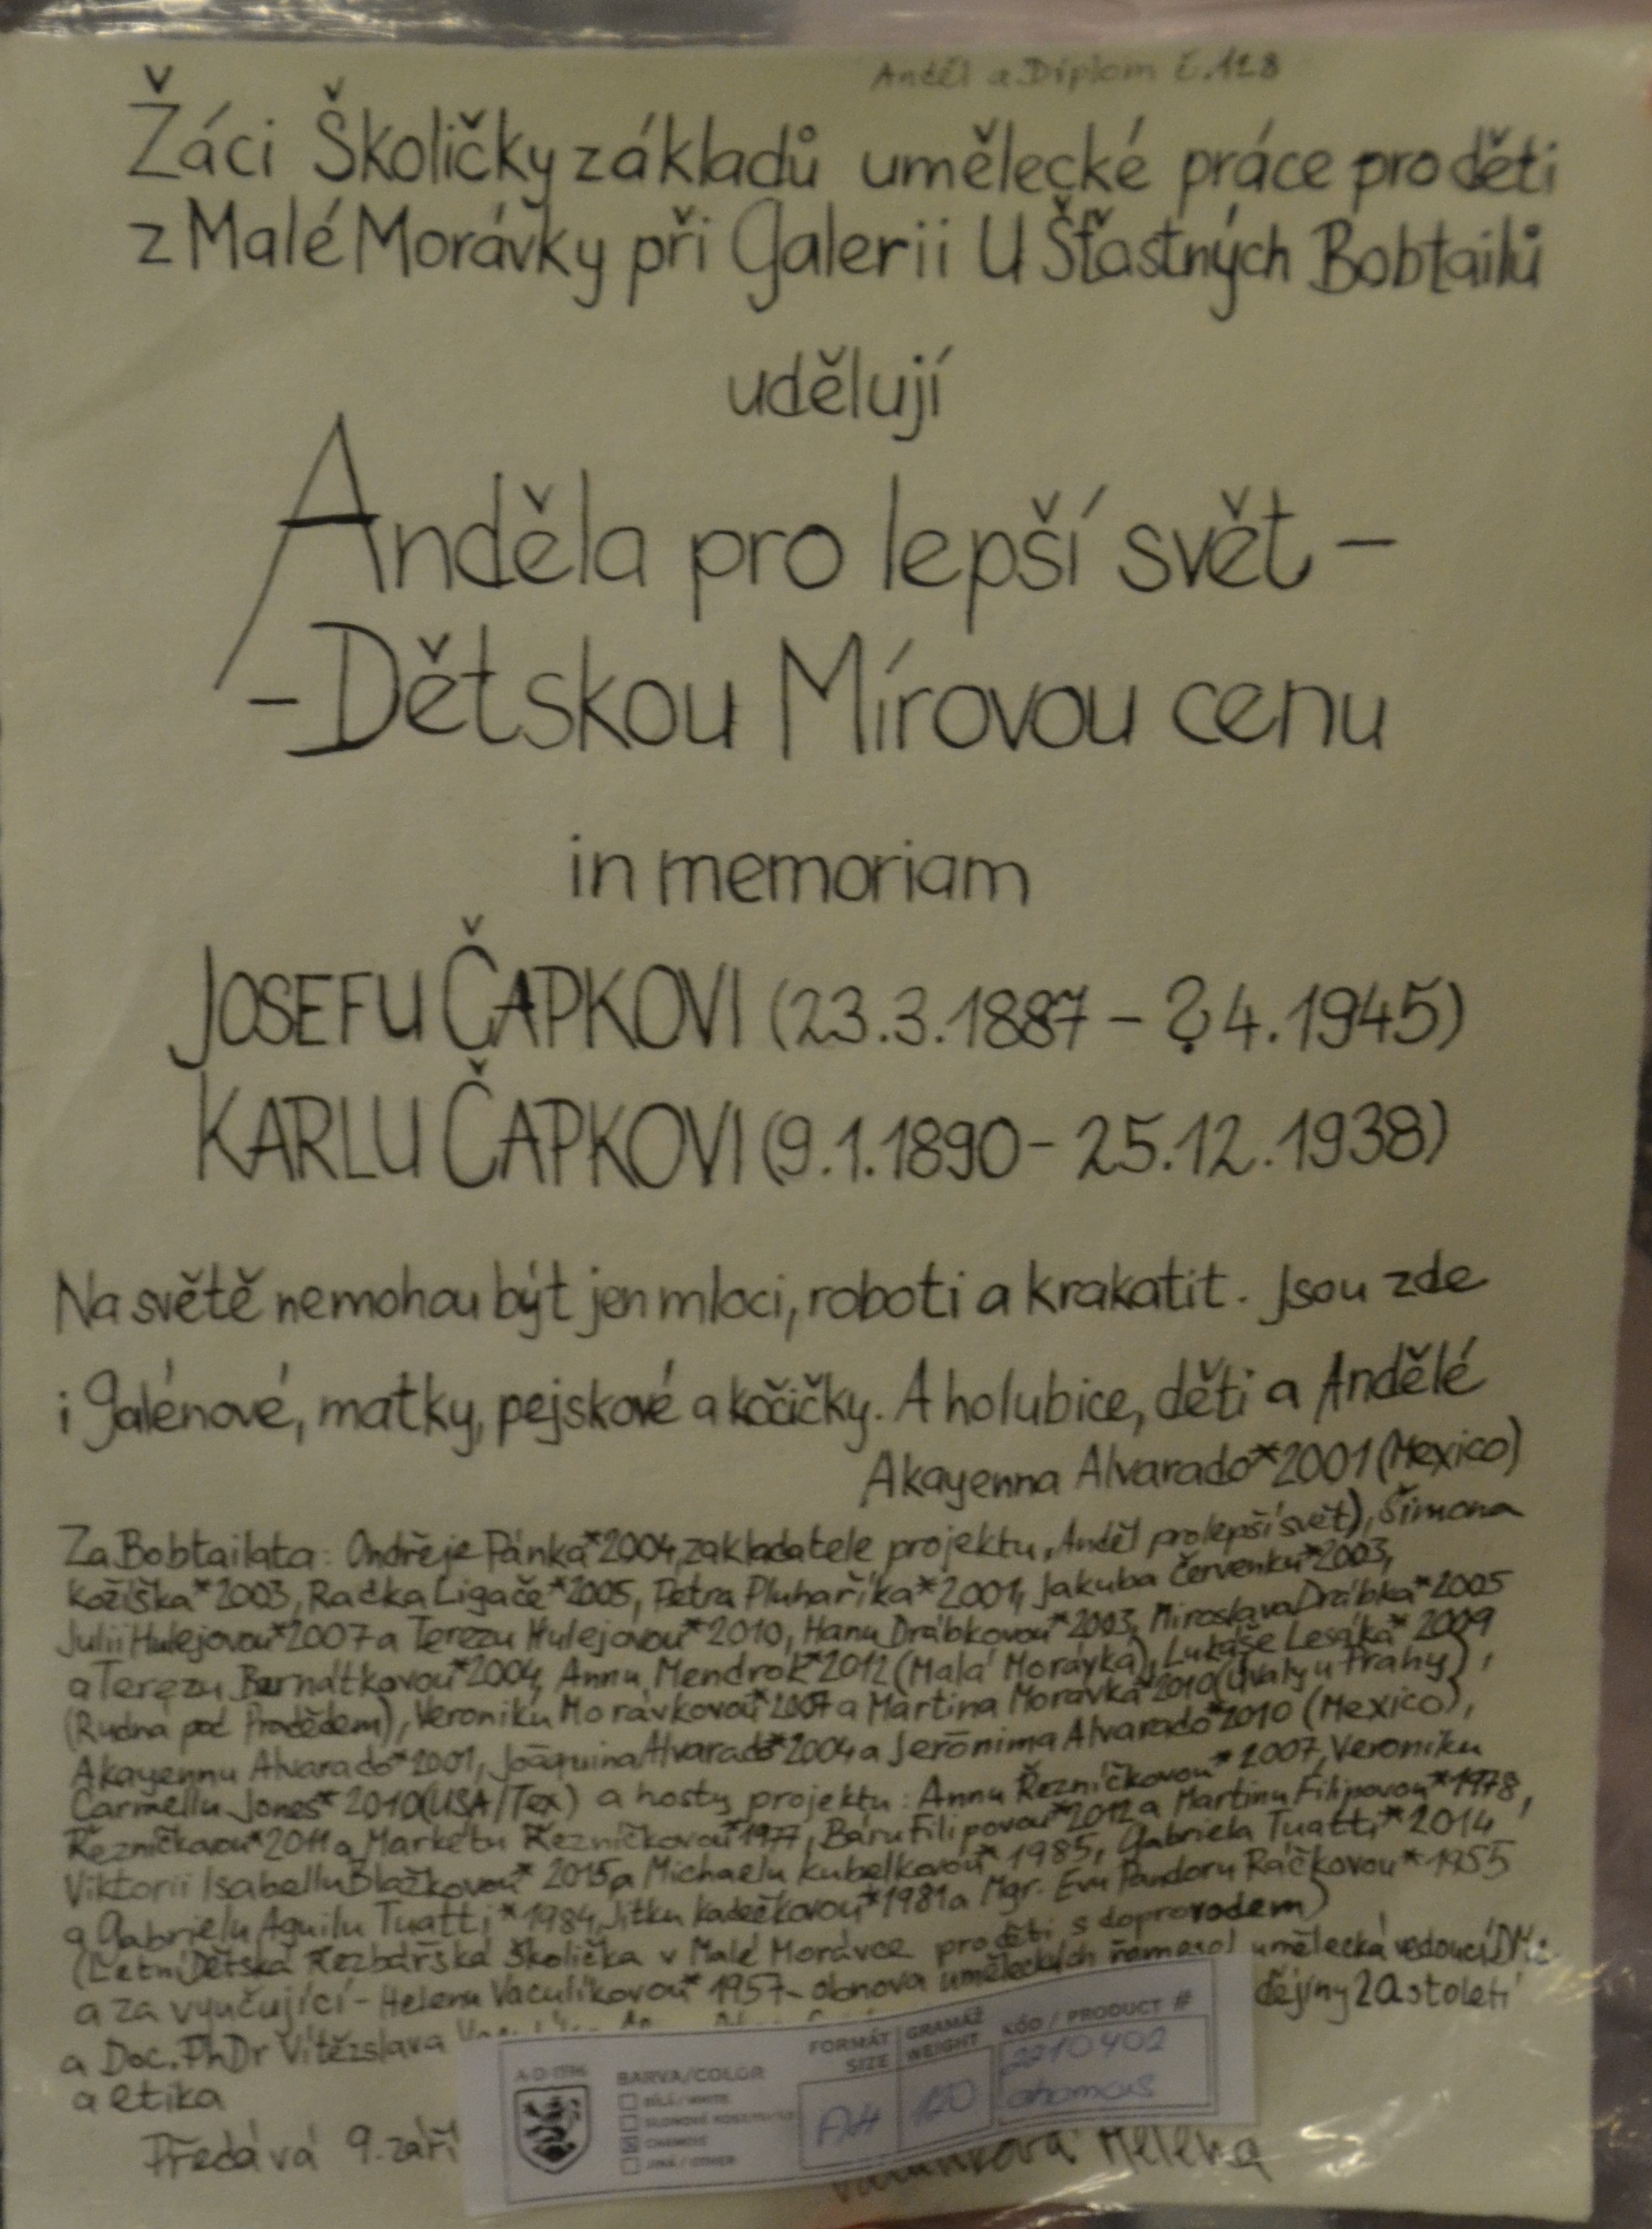 Anděl a Diplom č.128
Žáci Školičky základů umělecké práce pro děti
z Malé Morávky při Galerii U Šťastných Bobtailů
udělují
Anděla pro lepší svět –
– Dětskou Mírovou cenu
in memoriam
JOSEFU ČAPKOVI (23.3.1887 – ? 4.1945)
KARLU ČAPKOVI (9.1.1890 – 25.12.1938)
Na světě nemohou být jen mloci, roboti a krakatit. Jsou zde
i Galénové, matky, pejskové a kočičky. A holubice, děti a Andělé
Akayenna Alvarado*2001 (Mexico)
Za Bobtailata: Ondřeje Pánka*2004, zakladatele projektu „Anděl pro lepší svět), Šimona
Kožíška*2003, Radka Ligače*2005, Petra Pluhaříka*2001, Jakuba Červenku*2003,
Julii Hulejovou*2007 a Terezu Hulejovou*2010, Hanu Drábkovou*2003, Miroslava Drábka*2005
a Terezu Bernátkovou*2004, Annu Mendrok*2012 (Malá Morávka), Lukáše Lesáka*2009
(Rudná pod Pradědem), Veroniku Morávkovou*2007 a Martina Morávka*2010 (Úvaly u Prahy),
Akayennu Alvarado*2001, Joaquina Alvarado*2004 a Jerónima Alvarado*2010 (Mexico),
Carmellu Jones*2010 (USA/Tex) a hosty projektu: Annu Řezníčkovou*2007, Veroniku
Řezníčkovou*2011 a Markétu Řezníčkovou*1977, Báru Filipovou*2012 a Martinu Filipovou*1978,
Viktorii Isabellu Blažkovou*2015 a Michaelu Kubelkovou*1985, Gabriela Tuatti*2014
a Gabrielu Aguilu Tuatti*1984, Jitku Kadečkovou*1981 a Mgr. Evu Pandoru Ráčkovou*1955
(Letní Dětská Řezbářská školička v Malé Morávce pro děti s doprovodem)
a za vyučující – Helenu Vaculíkovou*1957 – obnova uměleckých řemesel umělecká vedoucí
a Doc. PhDr Vítězslava dějiny 20 století
a etika
Předává 9. září Helena
A·D·1596
BARVA/COLOR
BÍLÁ / WHITE
SLONOVÁ KOST/
CHAMOIS
JINÁ / OTHER
FORMÁT SIZE
GRAMÁŽ WEIGHT
KÓD / PRODUCT #
A4
120
2210402
chamois